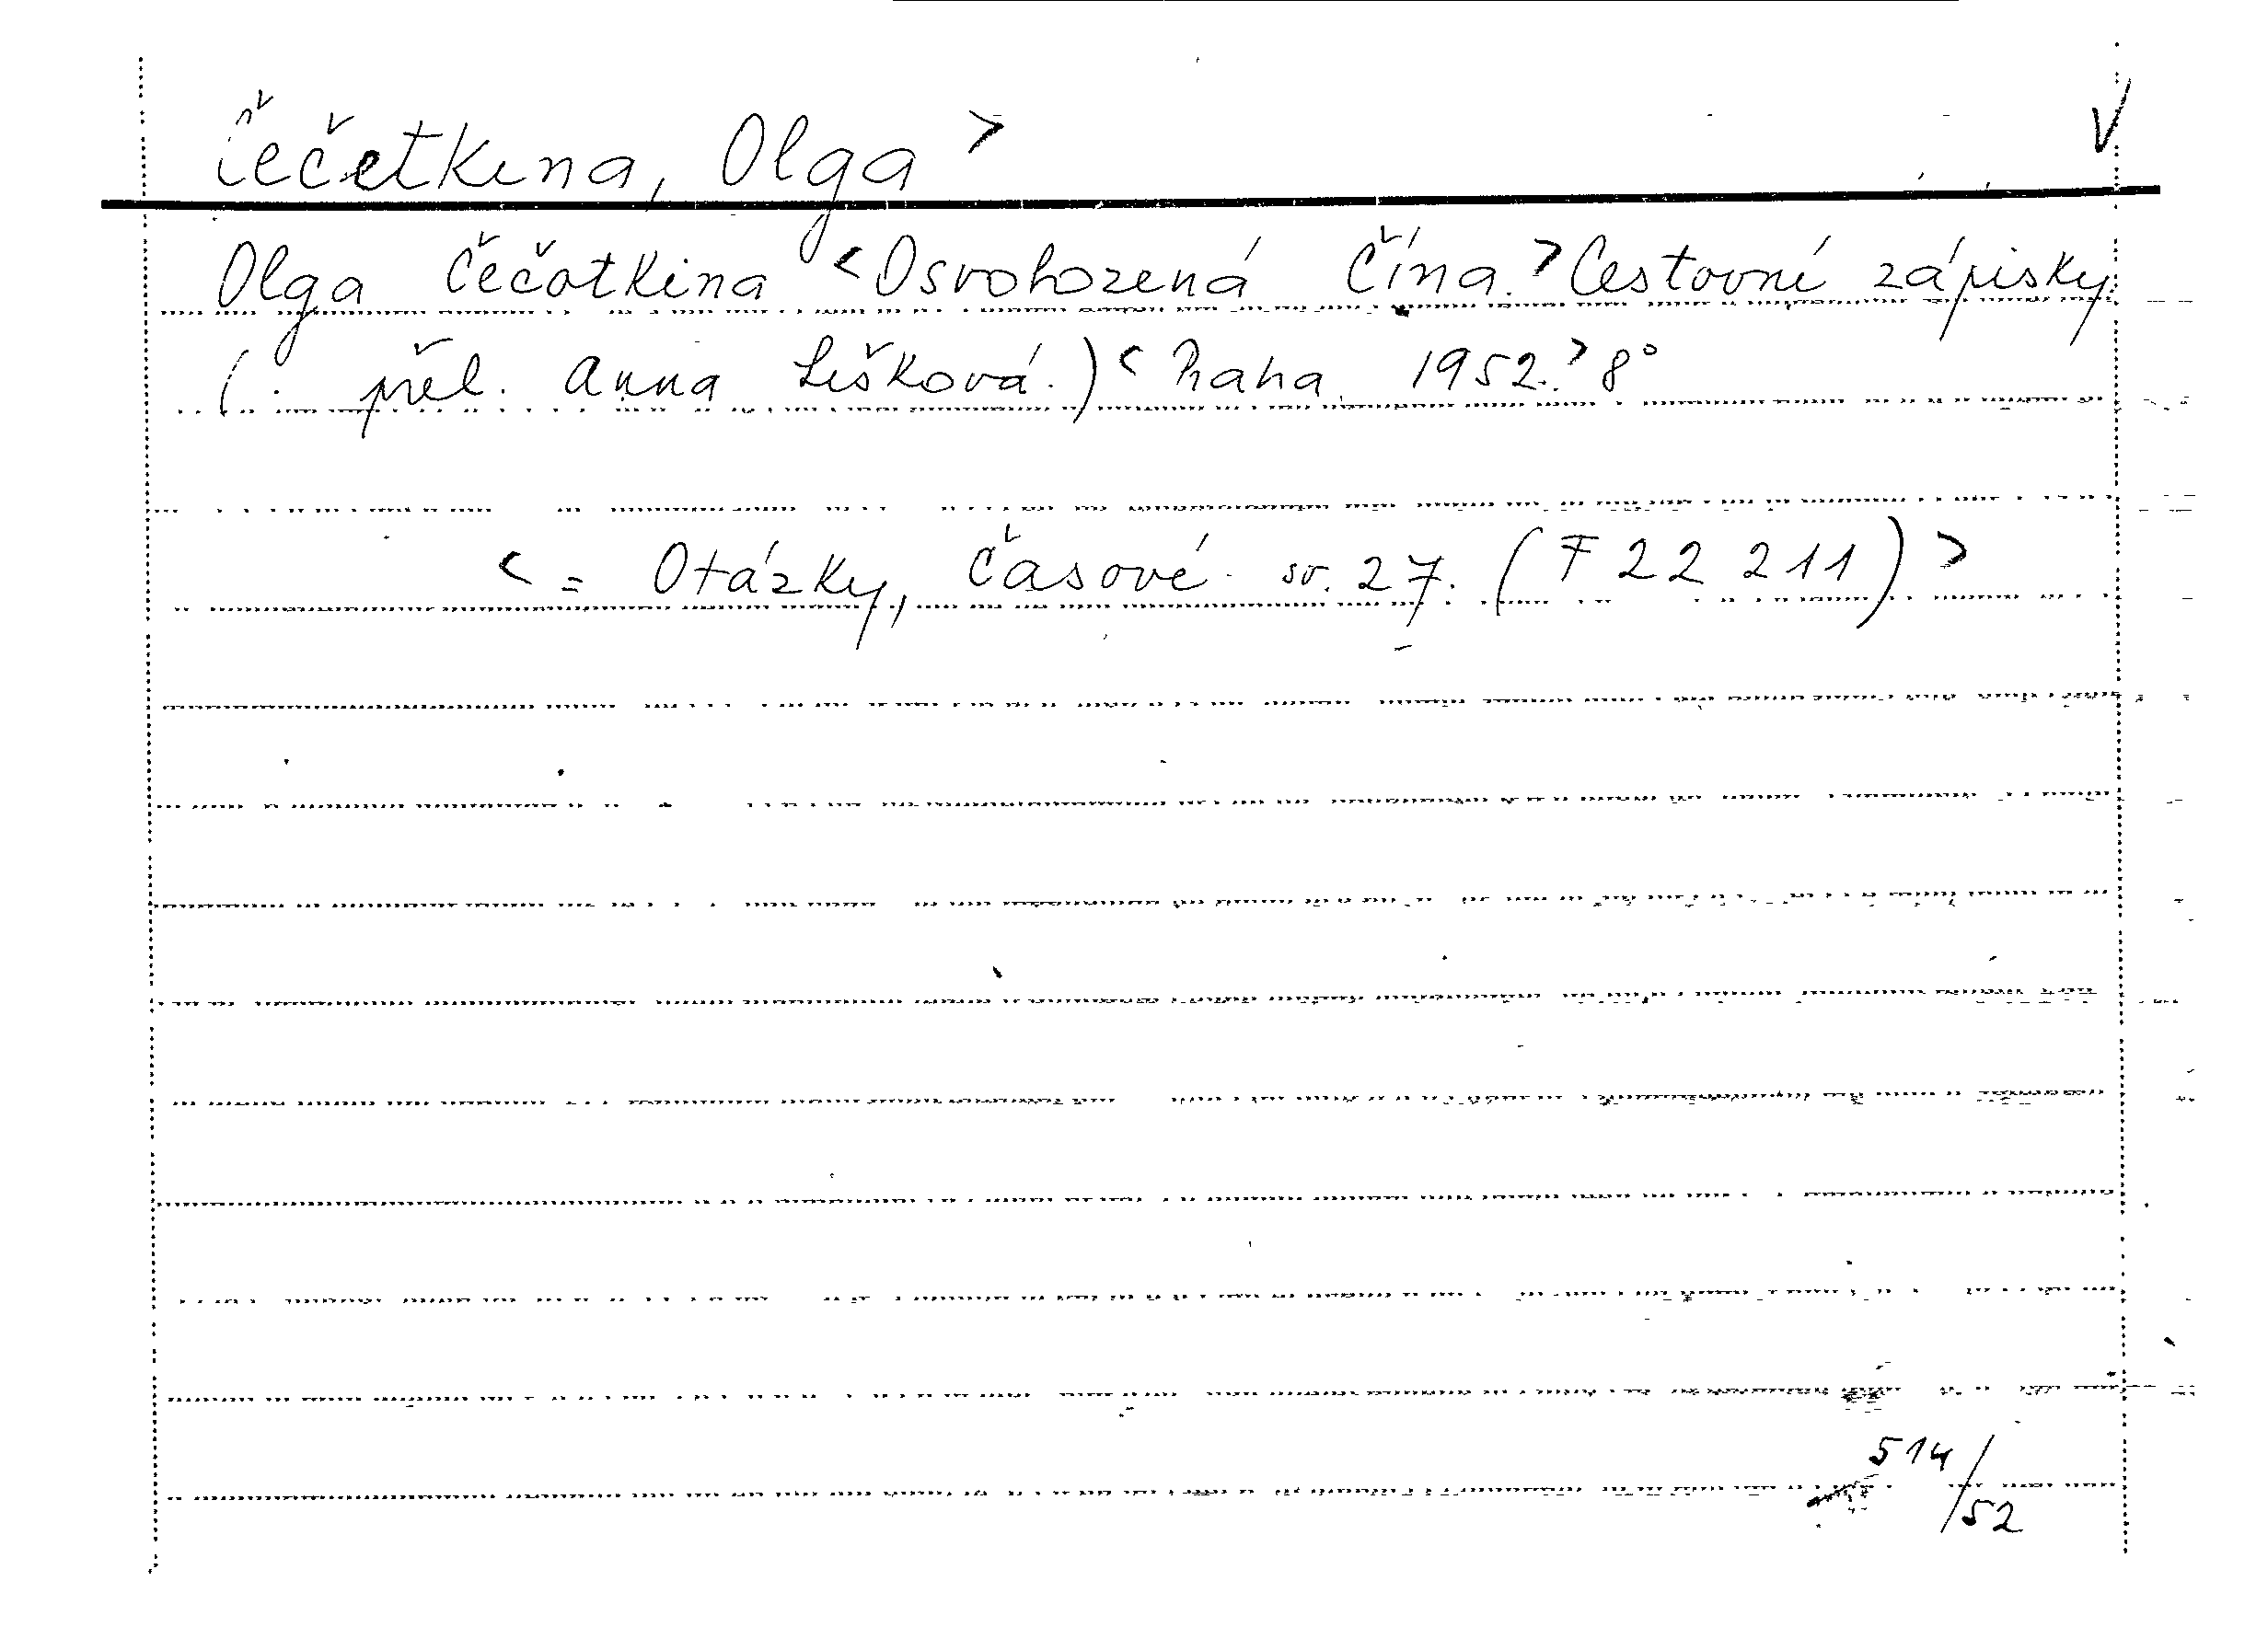 Čečetkina, Olga > V
Olga Čečotkina <Osvobozená Čína.> Cestovní zápisky.
(: přel. Anna Lišková.) <Praha 1952.> 8°
< = Otázky, Časové sv. 27. (F 22 211) >
514/52